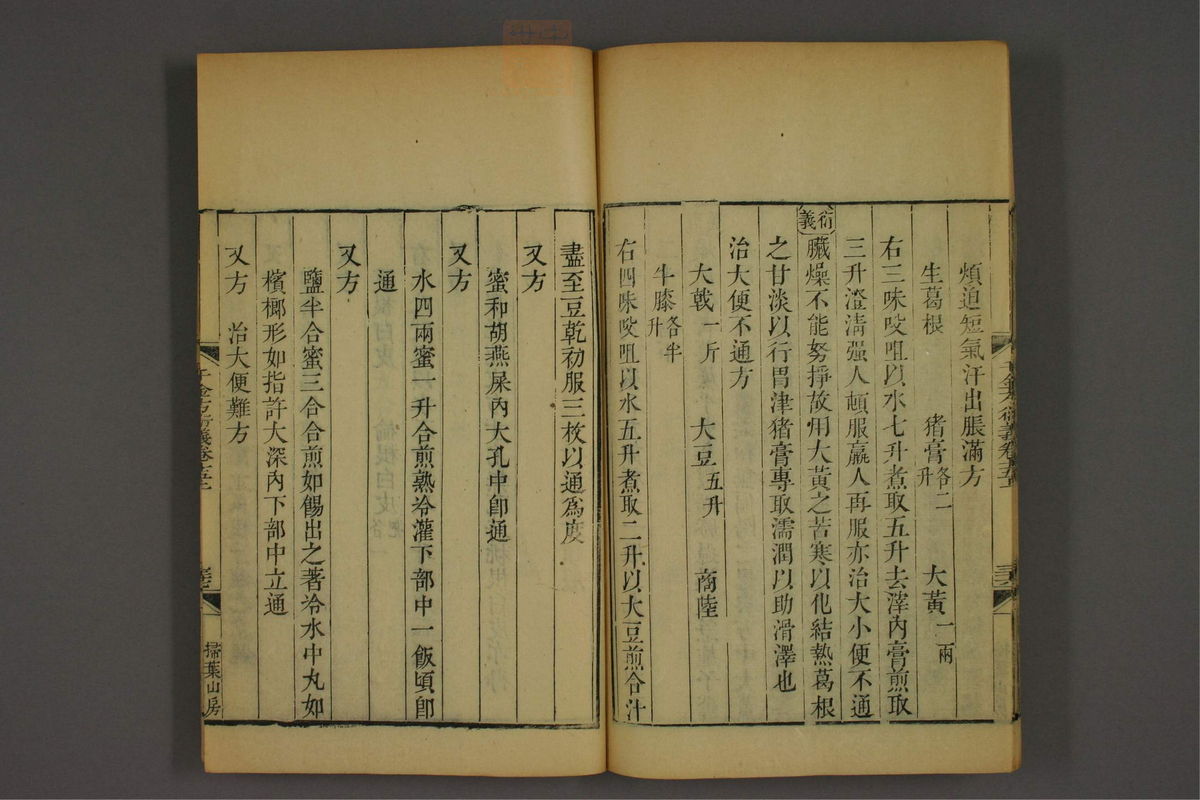 煩迫短氣汗出脹滿方
生葛根 猪膏各二升 大黃一兩
右三味㕮咀以水七升煮取五升去滓內膏煎取
三升澄清强人頓服羸人再服亦治大小便不通
衍義
臟燥不能努掙故用大黃之苦寒以化結熱葛根
之甘淡以行胃津猪膏專取濡潤以助滑澤也
治大便不通方
大戟一斤 大豆五升 商陸
牛膝各半升
右四味㕮咀以水五升煮取二升以大豆煎令汁
盡至豆乾初服三枚以通爲度
又方
蜜和胡燕屎內大孔中卽通
又方
水四兩蜜一升合煎熟冷灌下部中一飯頃卽
通
又方
鹽半合蜜三合合煎如餳出之著冷水中丸如
檳榔形如指許大深內下部中立通
又方 治大便難方
千金方衍義卷十五
掃葉山房